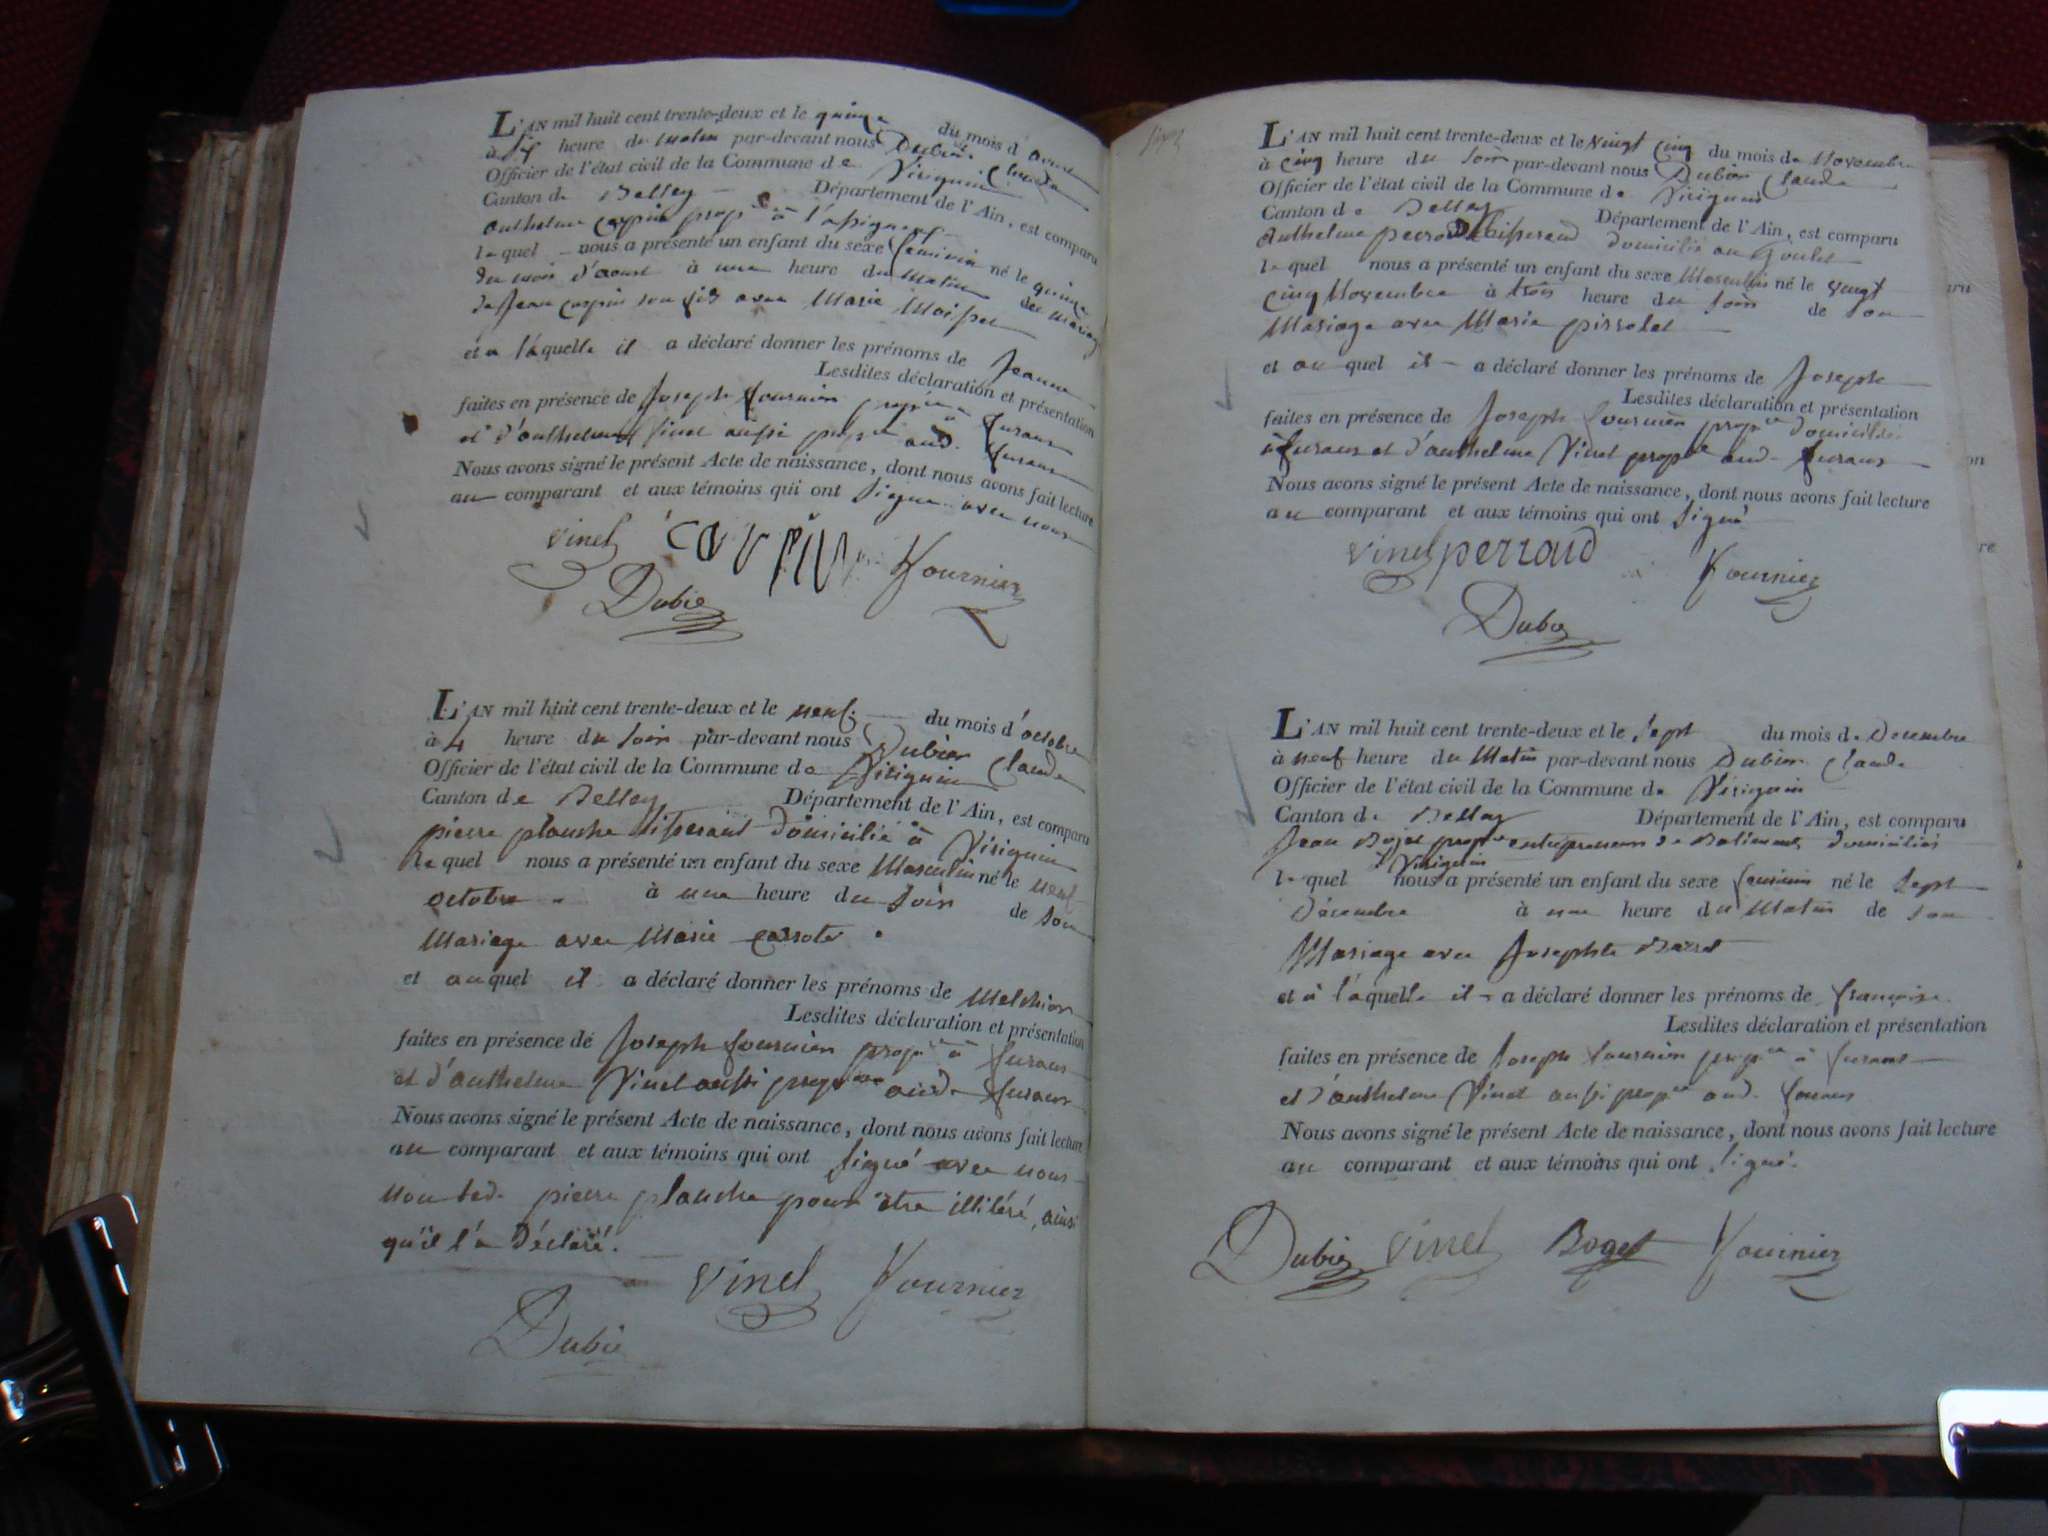 L'AN mil huit cent trente-deux et le quinze du mois d'aoust
à heure du matin par-devant nous Dubier Claude
Officier de l'état civil de la Commune de Virignin
Canton de Belley Département de l'Ain, est comparu
anthelme carpin prop.re à
lequel nous a présenté un enfant du sexe feminin né le quinze
du mois d'aoust à une heure du matin du mariage
de Jean carpin son fils avec Marie
et a laquelle il a déclaré donner les prénoms de Jeanne
Lesdites déclaration et présentation
faites en présence de Joseph fournier prop.re à furans
et d'anthelme Vinet aussi prop.re aud. furans
Nous avons signé le présent Acte de naissance, dont nous avons fait lecture
au comparant et aux témoins qui ont signé avec nous
vinet carpin fournier
Dubie
L'AN mil huit cent trente-deux et le neuf du mois d'octobre
à 4 heure du soir par-devant nous Dubier Claude
Officier de l'état civil de la Commune de Virignin
Canton de Belley Département de l'Ain, est comparu
pierre planche tisserand domicilié à Virignin
lequel nous a présenté un enfant du sexe Masculin né le neuf
octobre à une heure du soir de son
Mariage avec Marie
et auquel il a déclaré donner les prénoms de Melchior
Lesdites déclaration et présentation
faites en présence de Joseph fournier prop.re à furans
et d'anthelme Vinet aussi prop.re aud. furans
Nous avons signé le présent Acte de naissance, dont nous avons fait lecture
au comparant et aux témoins qui ont signé avec nous
non led. pierre planche pour être illiteré, ainsi
qu'il l'a déclaré.
vinet fournier
Dubie
L'AN mil huit cent trente-deux et le vingt cinq du mois de Novembre
à cinq heure du soir par-devant nous Dubier Claude
Officier de l'état civil de la Commune de Virignin
Canton de Belley Département de l'Ain, est comparu
anthelme perrod tisserand domicilié au Goulet
lequel nous a présenté un enfant du sexe Masculin né le vingt
cinq Novembre à trois heure du soir de son
Mariage avec Marie pissolet
et auquel il a déclaré donner les prénoms de Joseph
Lesdites déclaration et présentation
faites en présence de Joseph fournier prop.re domicilié
à furans et d'anthelme Vinet prop.re aud. furans
Nous avons signé le présent Acte de naissance, dont nous avons fait lecture
au comparant et aux témoins qui ont signé
vinet perraud fournier
Dubie
L'AN mil huit cent trente-deux et le sept du mois de Decembre
à neuf heure du Matin par-devant nous Dubier Claude
Officier de l'état civil de la Commune de Virignin
Canton de Belley Département de l'Ain, est comparu
Jean Bojet prop.re entrepreneur de Batiments domicilié
à Virignin
lequel nous a présenté un enfant du sexe feminin né le sept
Décembre à une heure du Matin de son
Mariage avec Josephte
et à laquelle il a déclaré donner les prénoms de françoise
Lesdites déclaration et présentation
faites en présence de Joseph fournier prop.re à furans
et d'anthelme Vinet aussi prop.re aud. furans
Nous avons signé le présent Acte de naissance, dont nous avons fait lecture
au comparant et aux témoins qui ont signé.
Dubie vinet Boget fournier